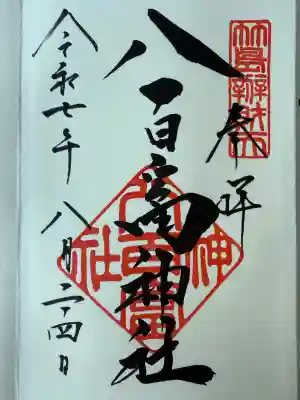 竹島辨財天
奉拝
八百富神社
八百富神社
令和七年八月二十四日